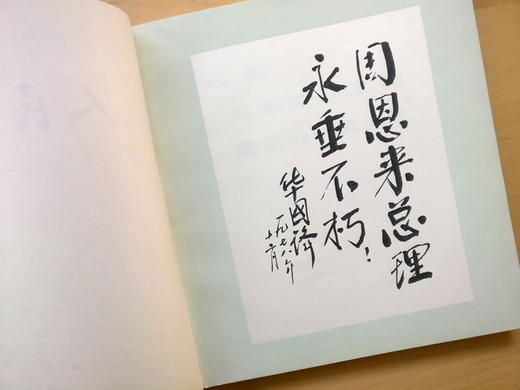 周恩来总理
永垂不朽！
华国锋
一九七八年
十二月
人民